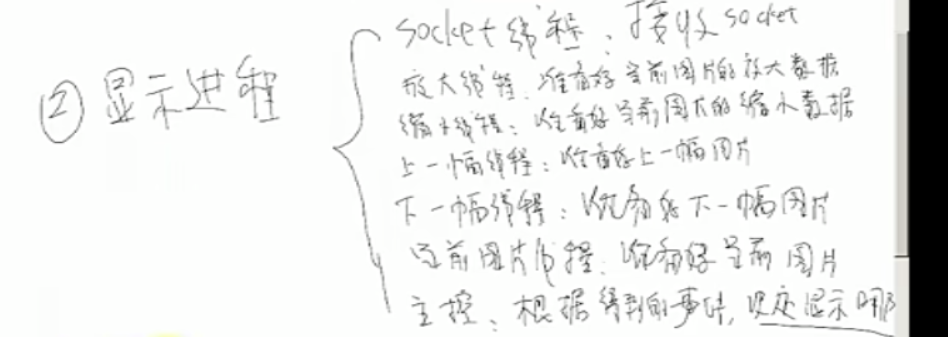 ② 显示进程
socket线程：接收socket
放大线程：准备好当前图片的放大数据
缩小线程：准备好当前图片的缩小数据
上一幅线程：准备好上一幅图片
下一幅线程：准备好下一幅图片
当前图片线程：准备好当前图片
主控：根据得到的事件，决定显示哪